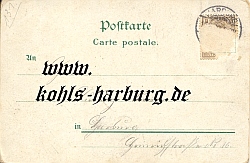 Postkarte
Carte postale.
An
www.
kohls-harburg.de
in Harburg